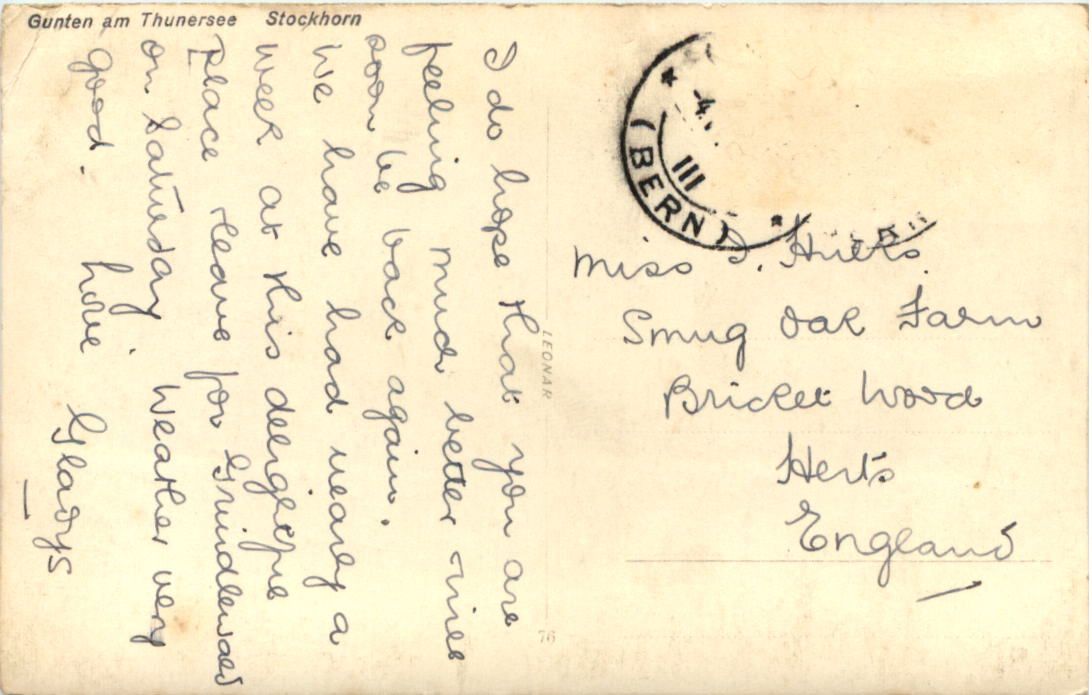 Gunten am Thunersee Stockhorn
I do hope that you are
feeling much better & will
soon be back again.
We have had nearly a
week at this delightful
place & leave for Grindlewald
on Saturday. Weather very
good. Love Gladys
LEONAR
76
-4.
III
(BERN)
Miss
Smug Oak Farm
Bricket Wood
Herts
England